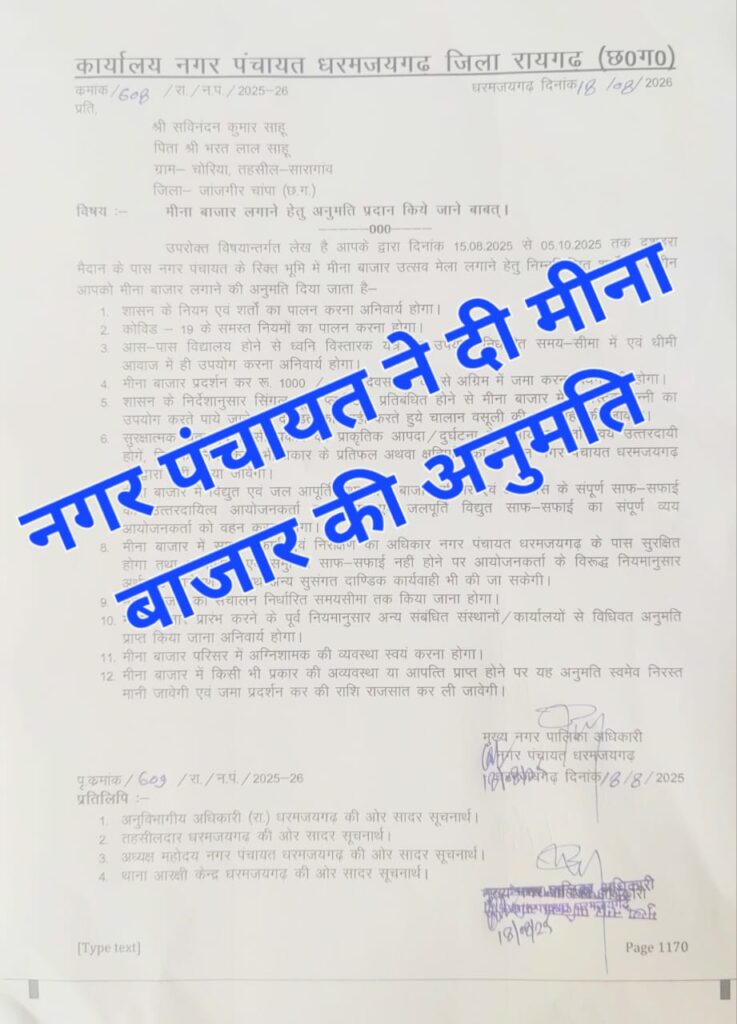 कार्यालय नगर पंचायत धरमजयगढ जिला रायगढ (छ0ग0)
कमांक/608 /रा./न.पं./2025-26 धरमजयगढ़ दिनांक 18/08/2026
प्रति,
श्री सविनंदन कुमार साहू
पिता श्री भरत लाल साहू
ग्राम– चोरिया, तहसील–सारागांव
जिला– जांजगीर चांपा (छ.ग.)
विषय :– मीना बाजार लगाने हेतु अनुमति प्रदान किये जाने बाबत्।
------000------
उपरोक्त विषयान्तर्गत लेख है आपके द्वारा दिनांक 15.08.2025 से 05.10.2025 तक दशहरा
मैदान के पास नगर पंचायत के रिक्त भूमि में मीना बाजार उत्सव मेला लगाने हेतु
आपको मीना बाजार लगाने की अनुमति दिया जाता है–
1. शासन के नियम एवं शर्तो का पालन करना अनिवार्य होगा।
2. कोविड – 19 के समस्त नियमों का पालन करना होगा।
3. आस–पास विद्यालय होने से ध्वनि विस्तारक यंत्र समय–सीमा में एवं धीमी
आवाज में ही उपयोग करना अनिवार्य होगा।
4. मीना बाजार प्रदर्शन कर रू. 1000 / से अग्रिम में जमा होगा।
5. शासन के निर्देशानुसार सिंगल प्रतिबंधित होने से मीना बाजार में का
उपयोग करते पाये करते हुये चालान वसूली की
6. सुरक्षात्मक प्राकृतिक आपदा/दुर्घटना उत्तरदायी
होगें, के प्रतिफल अथवा पंचायत धरमजयगढ़
जावेगा।
बाजार में विद्युत एवं जल आपूर्ति एवं के संपूर्ण साफ–सफाई
उत्तरदायित्व आयोजनकर्ता जलपूर्ति विद्युत साफ–सफाई का संपूर्ण व्यय
आयोजनकर्ता को वहन होगा।
8. मीना बाजार में एवं निरीक्षण का अधिकार नगर पंचायत धरमजयगढ के पास सुरक्षित
होगा तथा साफ–सफाई नही होने पर आयोजनकर्ता के विरूद्ध नियमानुसार
अन्य सुसंगत दाण्डिक कार्यवाही भी की जा सकेगी।
9. का संचालन निर्धारित समयसीमा तक किया जाना होगा।
10. प्रारंभ करने के पूर्व नियमानुसार अन्य संबंधित संस्थानों/कार्यालयों से विधिवत अनुमति
प्राप्त किया जाना अनिवार्य होगा।
11. मीना बाजार परिसर में अग्निशामक की व्यवस्था स्वयं करना होगा।
12. मीना बाजार में किसी भी प्रकार की अव्यवस्था या आपत्ति प्राप्त होने पर यह अनुमति स्वमेव निरस्त
मानी जावेगी एवं जमा प्रदर्शन कर की राशि राजसात कर ली जावेगी।
नगर पंचायत ने दी मीना
बाजार की अनुमति
मुख्य नगर पालिका अधिकारी
नगर पंचायत धरमजयगढ़
पृ.कमांक/609 /रा./न.पं./2025-26 दिनांक 18/8/2025
18/8/25
प्रतिलिपि :–
1. अनुविभागीय अधिकारी (रा.) धरमजयगढ की ओर सादर सूचनार्थ।
2. तहसीलदार धरमजयगढ की ओर सादर सूचनार्थ।
3. अध्यक्ष महोदय नगर पंचायत धरमजयगढ की ओर सादर सूचनार्थ।
4. थाना आरक्षी केन्द्र धरमजयगढ की ओर सादर सूचनार्थ।
मुख्य नगर पालिका अधिकारी
18/08/25
[Type text] Page 1170